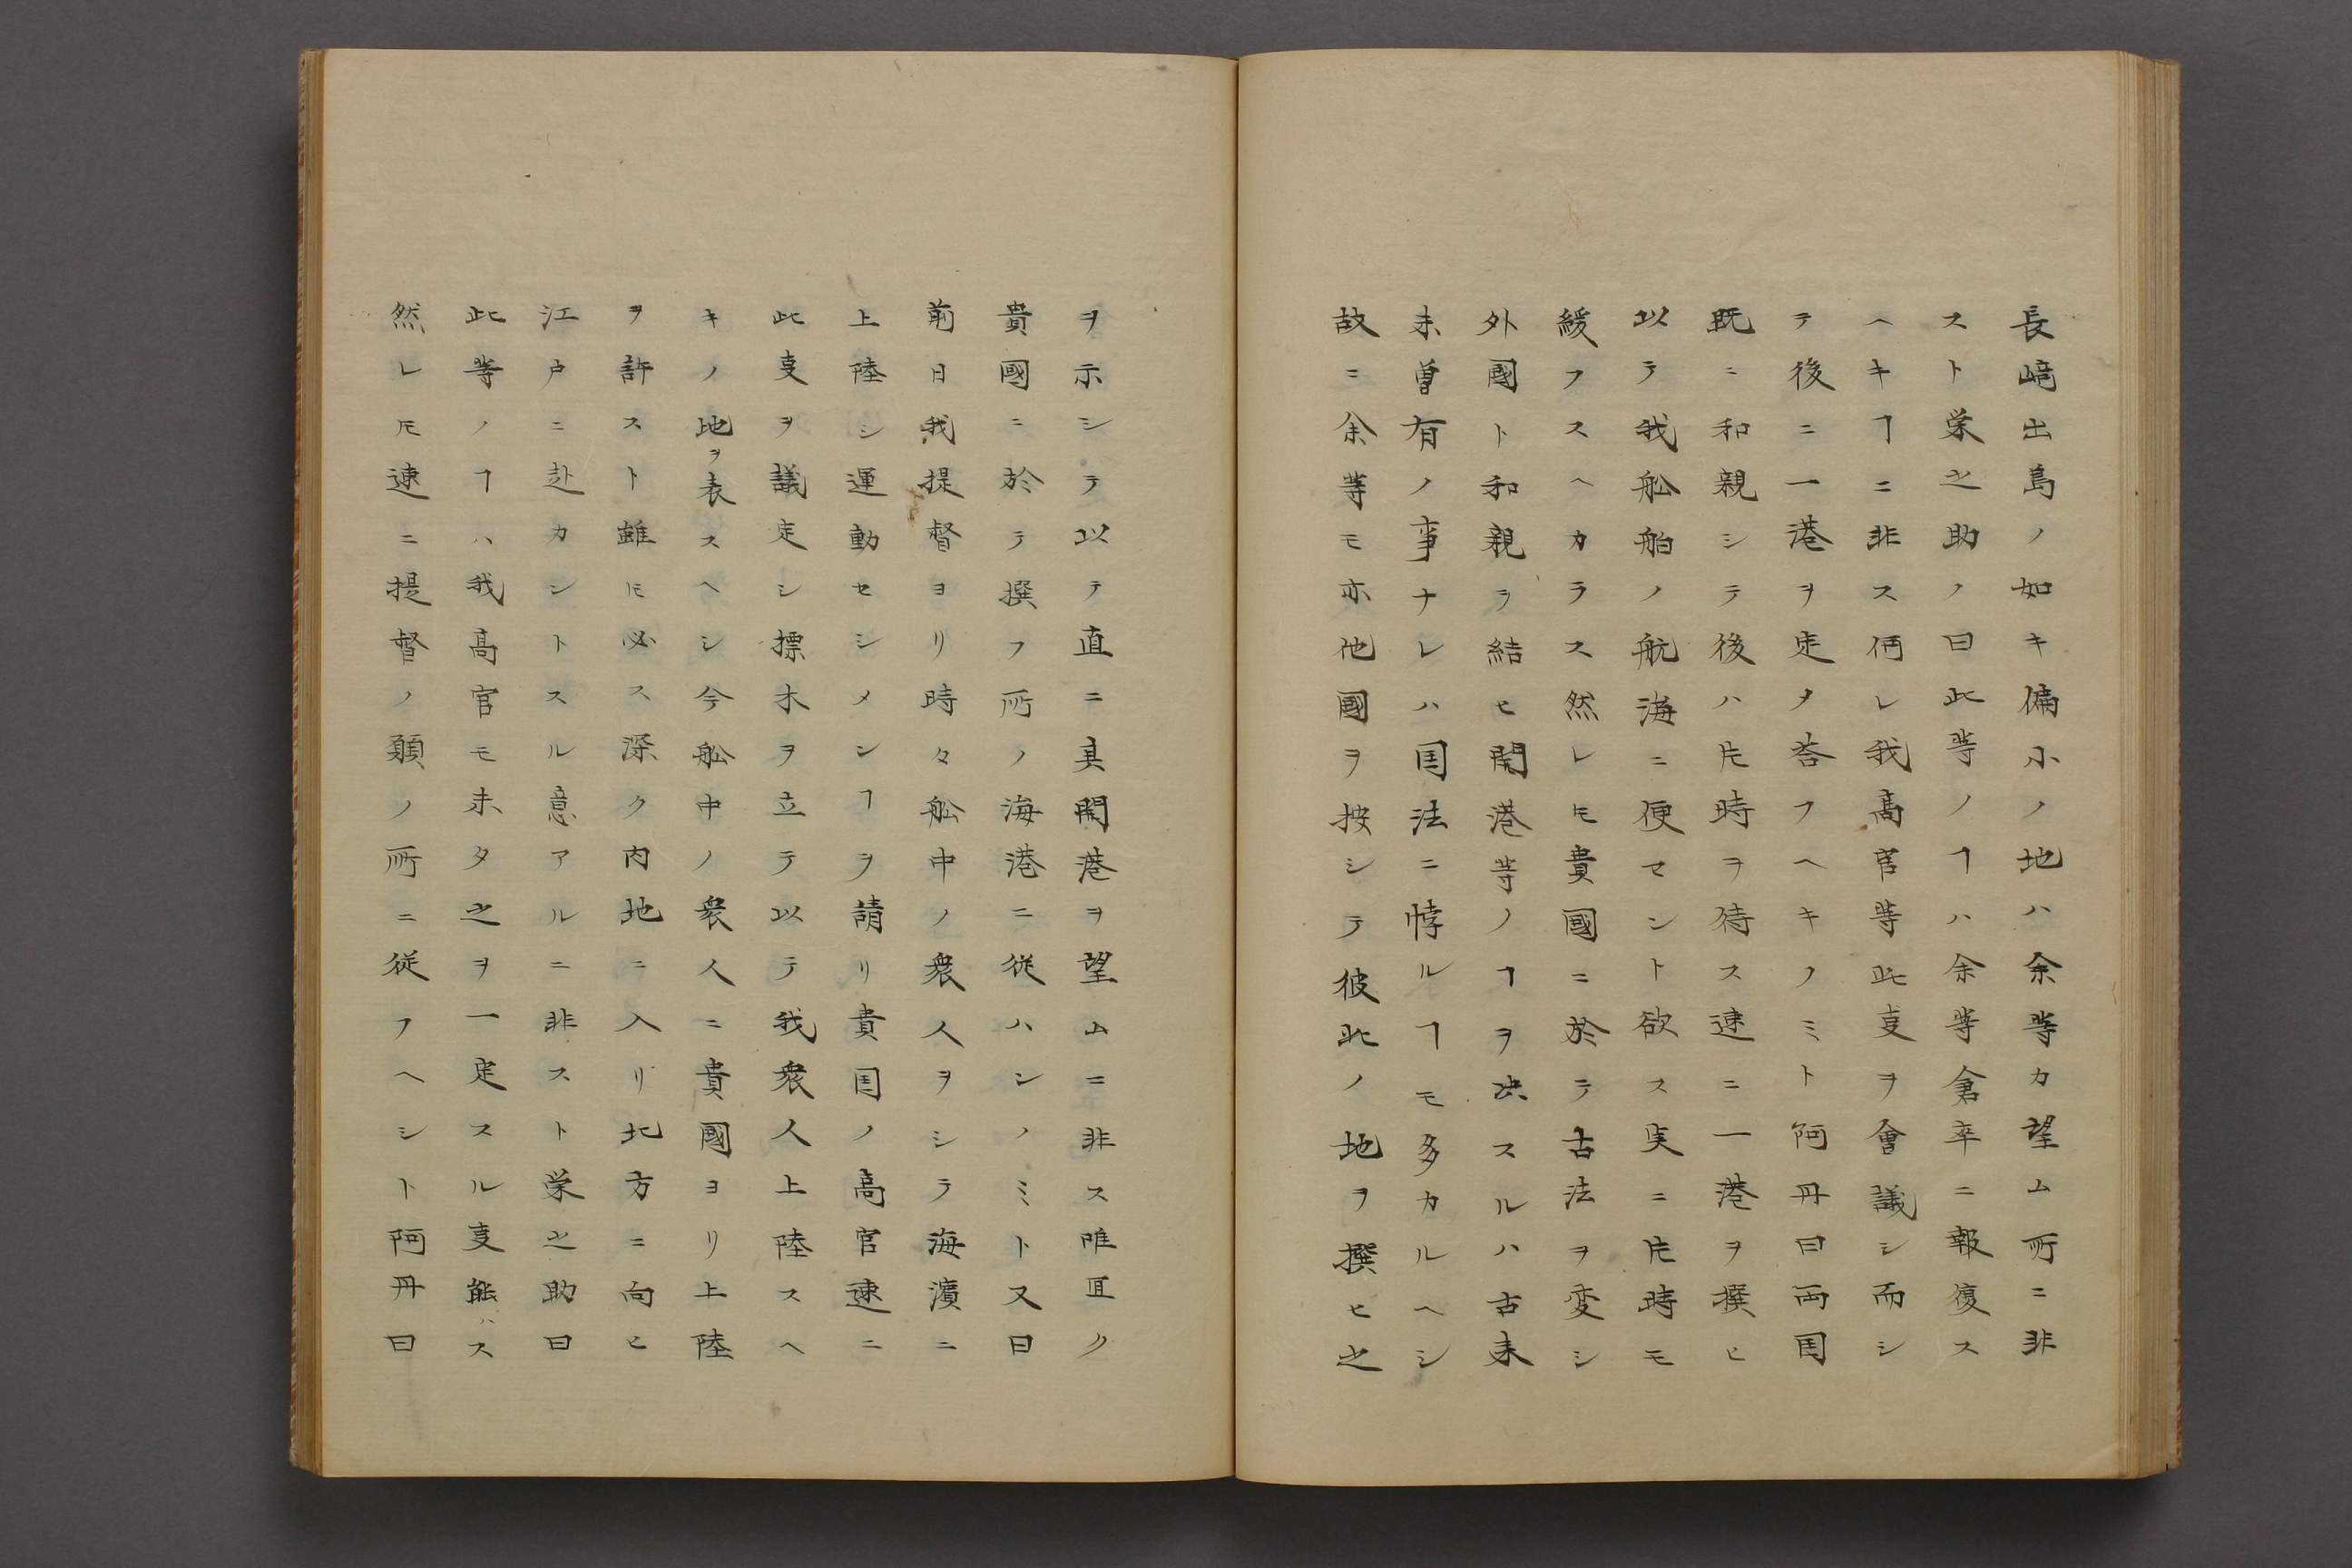 長﨑出島ノ如キ偏小ノ地ハ余等カ望ム所ニ非
スト栄之助ノ曰此等ノヿハ余等倉卒ニ報復ス
ヘキヿニ非ス何レ我髙官等此叓ヲ會議シ而シ
テ後ニ一港ヲ定タ荅フヘキノミト阿丹曰両国
既ニ和親シテ後ハ片時ヲ待ス速ニ一港ヲ撰ヒ
以テ我舩舶ノ航海ニ便セント欲ス実ニ片時モ
緩フスヘカラス然レ𪜈貴國ニ於テ古法ヲ変シ
外國ト和親ヲ結ヒ開港等ノヿヲ决スルハ古来
未曽有ノ事ナレハ国法ニ悖ルヿモ多カルヘシ
故ニ余等モ亦他國ヲ按シテ彼此ノ地ヲ撰ヒ之
ヲ示シテ以テ直ニ其開港ヲ望ムニ非ス唯冝ク
貴國ニ於テ撰フ所ノ海港ニ従ハンノミト又曰
前日我提督ヨリ時々舩中ノ衆人ヲシテ海濵ニ
上陸シ運動セシメンヿヲ請リ貴国ノ髙官速ニ
此叓ヲ議定シ標木ヲ立テ以テ我衆人上陸スヘ
キノ地ヲ表スヘシ今舩中ノ衆人ニ貴國ヨリ上陸
ヲ許スト雖𪜈必ス深ク内地ニ入リ北方ニ向ヒ
江戸ニ赴カントスル意アルニ非スト栄之助曰
此等ノヿハ我髙官モ未タ之ヲ一定スル叓能ハス
然レ𪜈速ニ提督ノ願ノ所ニ従フヘシト阿丹曰